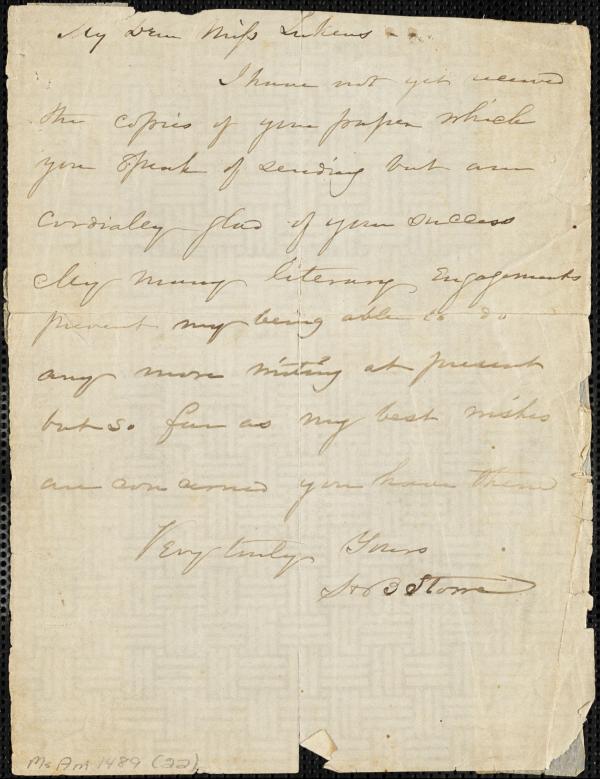 My Dear Miss Lukens - -
I have not yet received
the copies of your paper which
you speak of sending but am
cordially glad of your success
My many literary Engagements
prevent my being able to do
any more writing at present
but so far as my best wishes
are concerned you have them
Very truly Yours
H B Stowe
Ms Am 1489 (22)